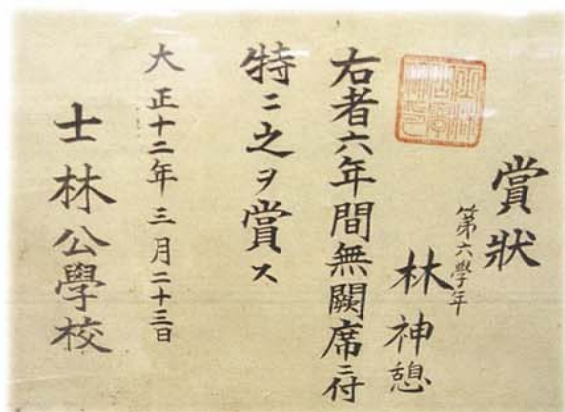 賞狀
第六學年
林神憩
右者六年間無闕席ニ付
特ニ之ヲ賞ス
大正十二年三月二十三日
士林公學校